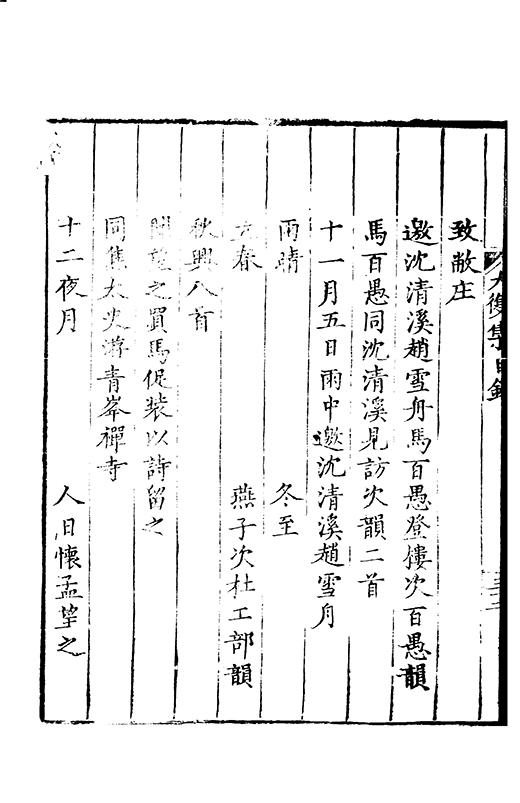 致敝庄
邀沈清溪趙雪舟馬百愚登樓次百愚韻
馬百愚同沈清溪見訪次韻二首
十一月五日雨中邀沈清溪趙雪舟
雨晴 冬至
立春 燕子次杜工部韻
秋興八首
望之買馬促裝以詩留之
同焦太史游青峯禪寺
十二夜月 人日懷孟望之
大復集目錄